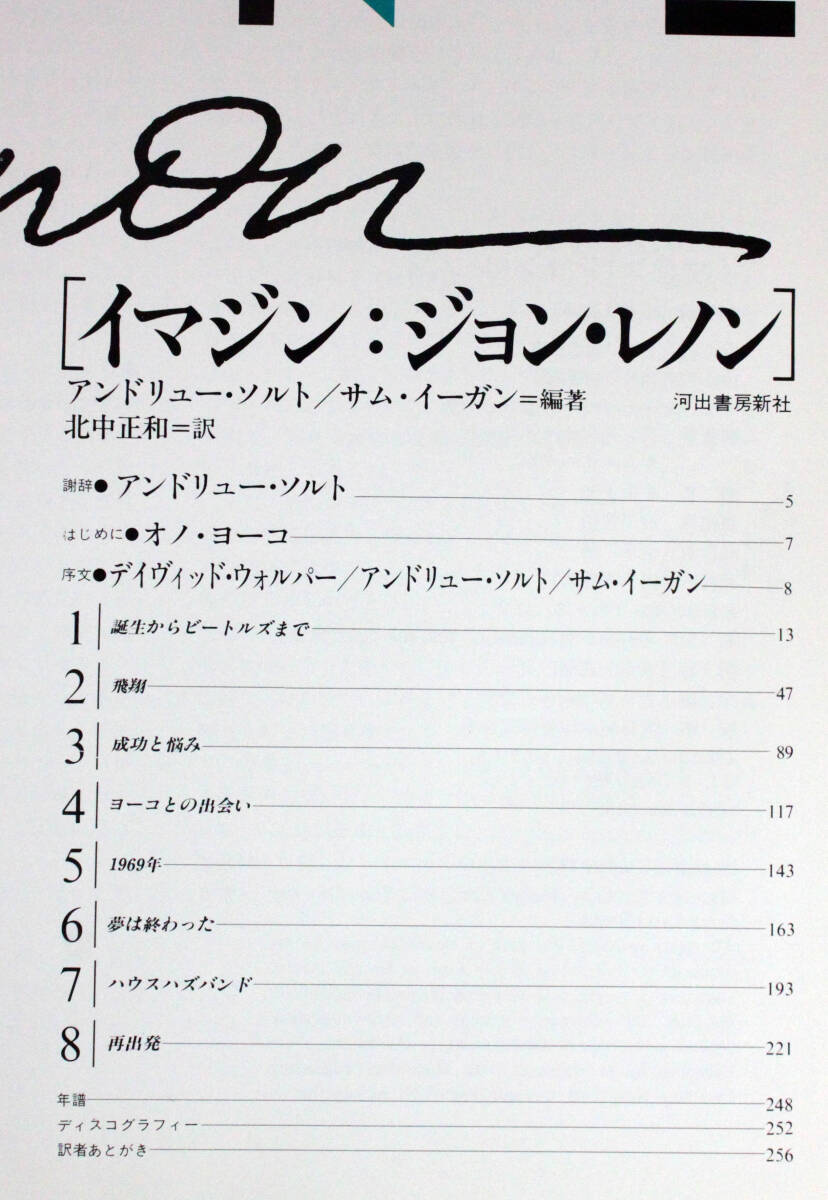 non
[イマジン:ジョン・レノン]
アンドリュー・ソルト/サム・イーガン=編著 河出書房新社
北中正和=訳
謝辞●アンドリュー・ソルト 5
はじめに●オノ・ヨーコ 7
序文●デイヴィッド・ウォルパー/アンドリュー・ソルト/サム・イーガン 8
1 誕生からビートルズまで 13
2 飛翔 47
3 成功と悩み 89
4 ヨーコとの出会い 117
5 1969年 143
6 夢は終わった 163
7 ハウスハズバンド 193
8 再出発 221
年譜 248
ディスコグラフィー 252
訳者あとがき 256